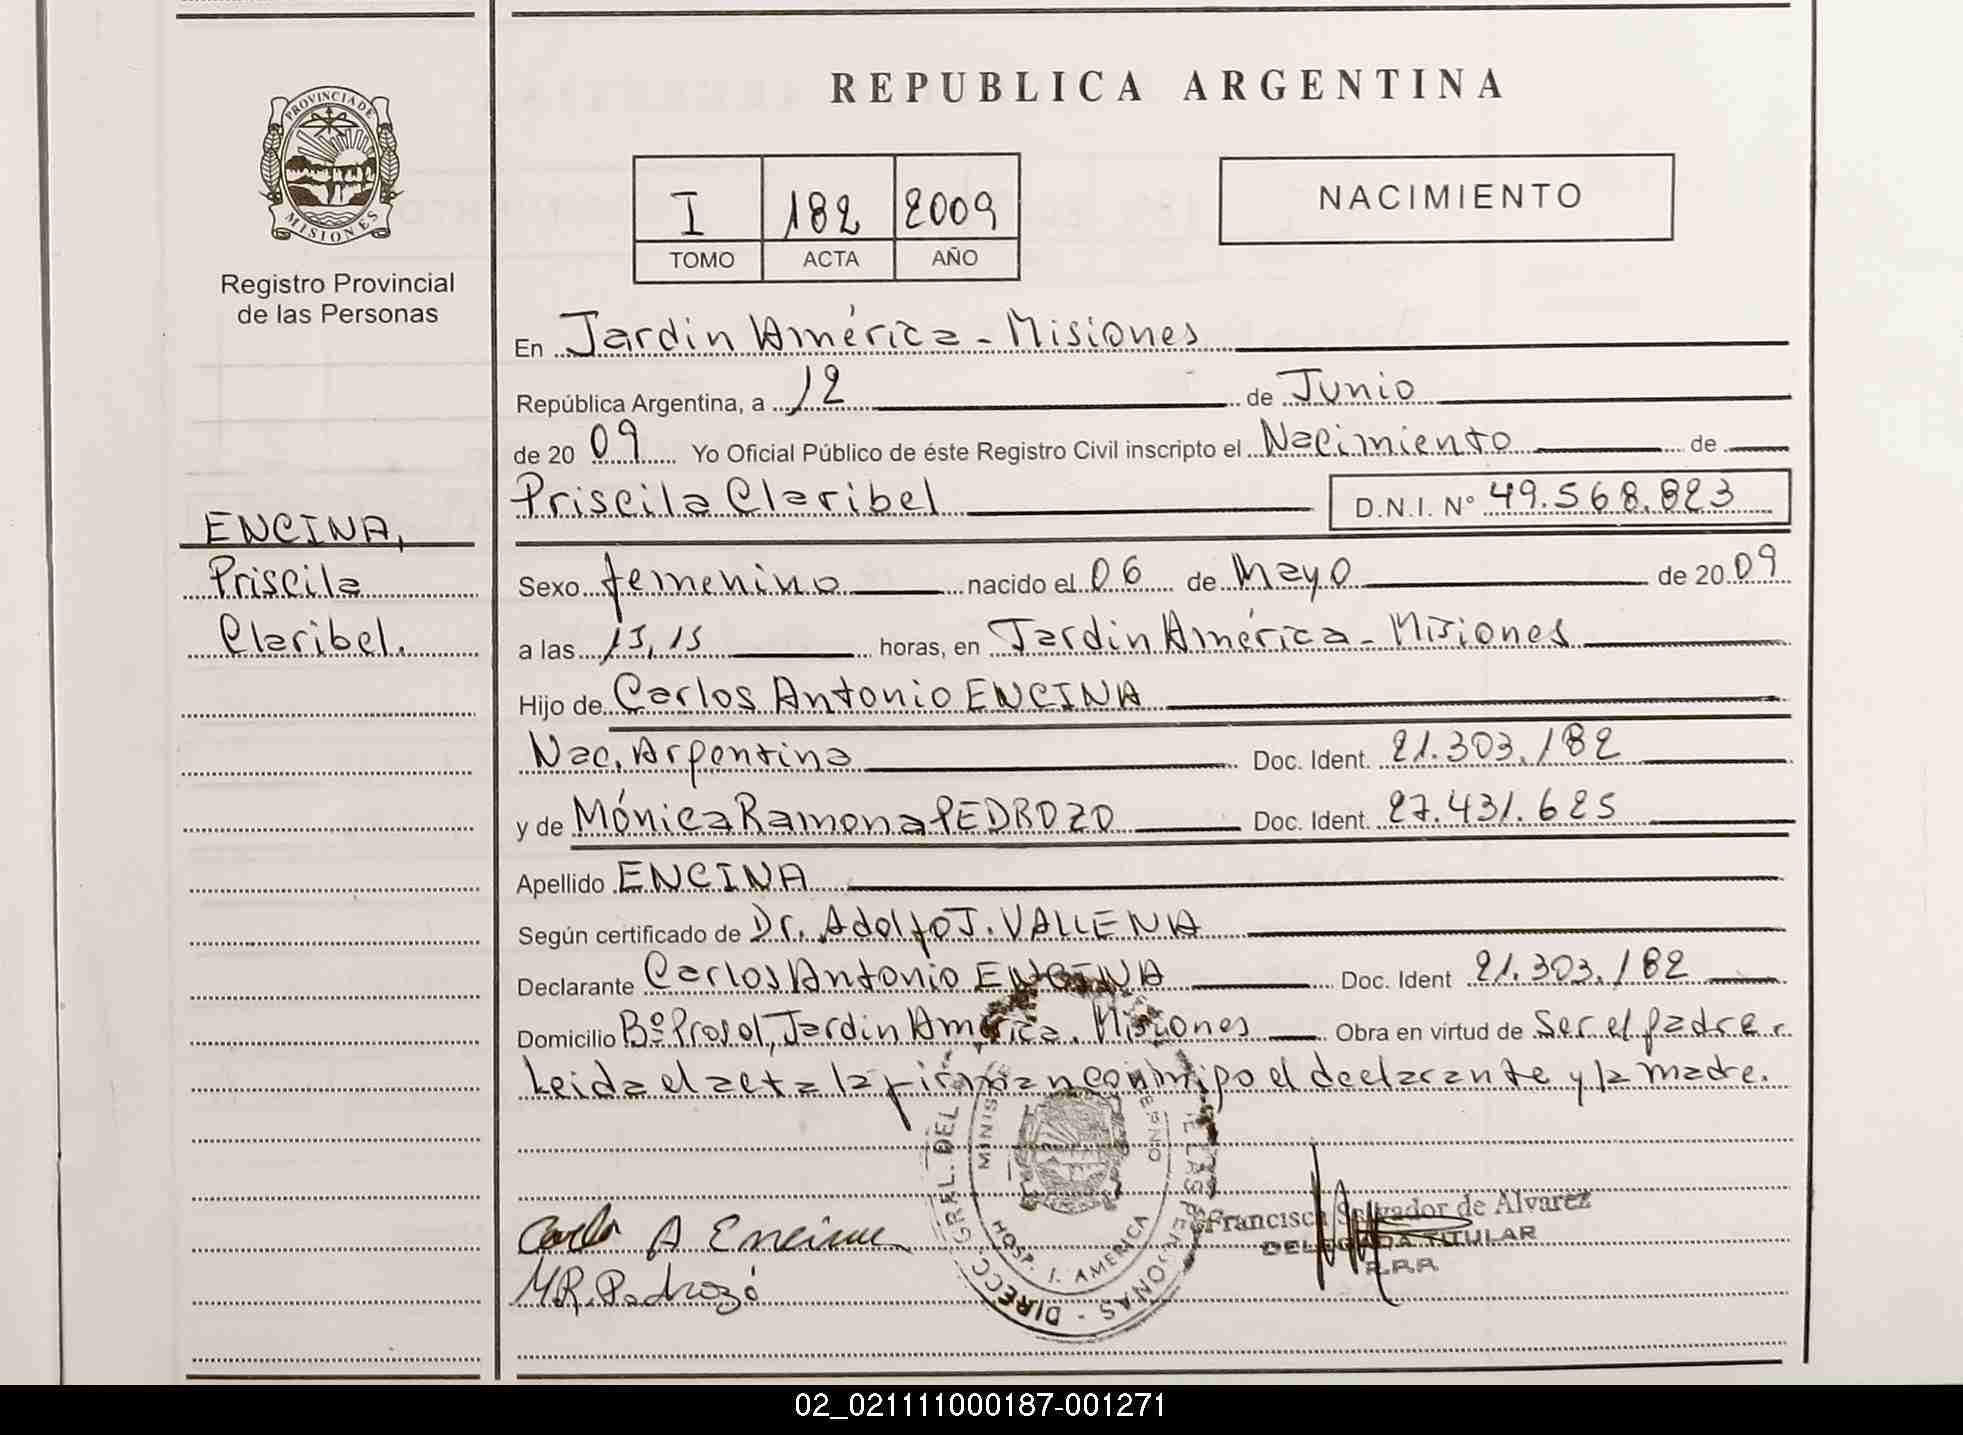 REPUBLICA ARGENTINA
PROVINCIA DE
MISIONES
Registro Provincial
de las Personas
I 182 2009
TOMO ACTA AÑO
NACIMIENTO
En Jardin América - Misiones
República Argentina, a 12 de Junio
de 20 09 Yo Oficial Público de éste Registro Civil inscripto el Nacimiento de
Priscila Claribel D.N.I. N° 49.568.823
ENCINA,
Priscila
Claribel.
Sexo femenino nacido el 06 de Mayo de 20 09
a las 13,15 horas, en Jardin América - Misiones
Hijo de Carlos Antonio ENCINA
Nac. Argentina Doc. Ident. 21.303.182
y de Mónica Ramona PEDROZO Doc. Ident. 27.431.625
Apellido ENCINA
Según certificado de Dr. Adolfo J. VALLENA
Declarante Carlos Antonio ENCINA Doc. Ident 21.303.182
Domicilio Bº Prosol, Jardin América. Misiones Obra en virtud de Ser el padre
Leida el acta la firman conmigo el declarante y la madre.
DIRECC. GRAL. DEL DE LAS PERSONAS
HOSP. J. AMERICA
Francisca Salvador de Alvarez
DELEGADA TITULAR
R.P.P.
Carlos A Encina
M.R. Pedrozo
02_021111000187-001271